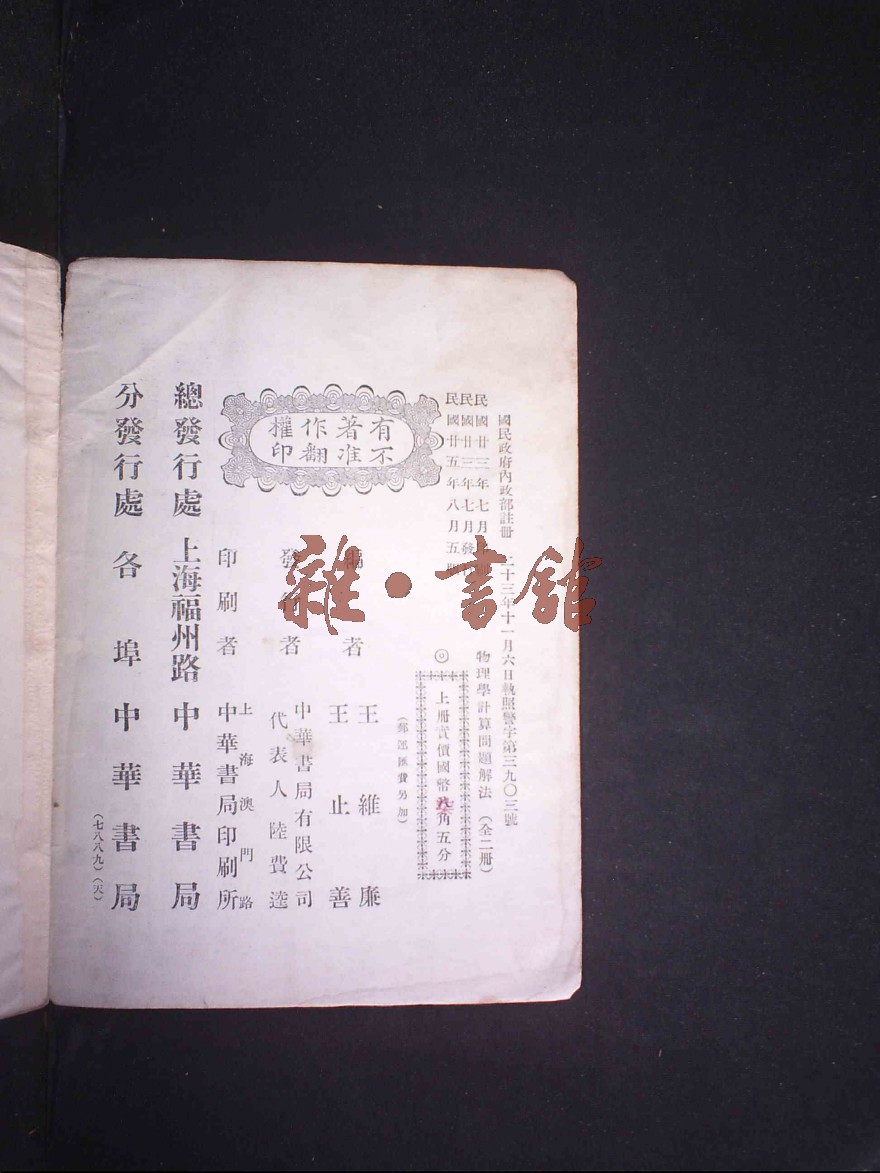 國民政府內政部註冊 二十三年十一月六日執照警字第三九〇三號
民國廿三年七月
民國廿三年七月發
民國廿五年八月五
物理學計算問題解法(全二冊)
◎
上册實價國幣 角五分
(郵運匯費另加)
有著作權
不准翻印
者
王維廉
王止善
發行者
中華書局有限公司
代表人陸費逵
印刷者
上海澳門路
中華書局印刷所
總發行處 上海福州路 中華書局
分發行處 各埠中華書局
(七八八九)(天)
雜·書舘